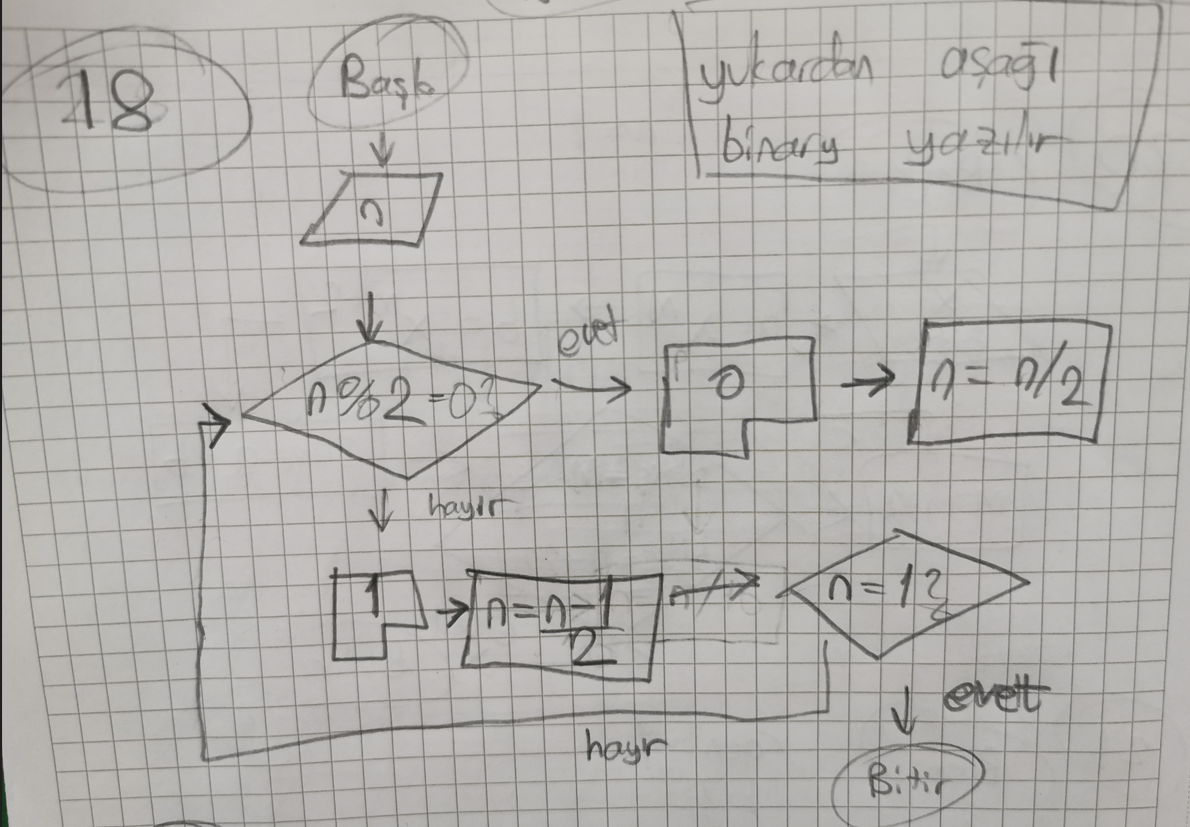 18
Başla
yukardan aşağı
binary yazılır
n
n%2=0?
evet
0
n = n/2
hayır
1
n = n-1
2
n=1?
evett
hayır
Bitir